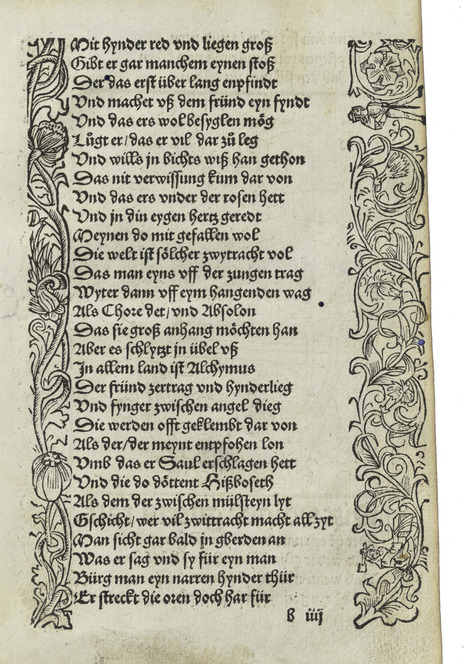 Mit hynder red vnd liegen groß
Gibt er gar manchem eynen stoß
Der das erst über lang enpfindt
Vnd machet vß dem fründ eyn fyndt
Vnd das ers wol besyglen mög
Lügt er/das er vil dar zů leg
Vnd wills jn bichts wiß han gethon
Das nit verwissung kum dar von
Vnd das ers vnder der rosen hett
Vnd jn din eygen hertz geredt
Meynen do mit gefallen wol
Die welt ist sölcher zwytracht vol
Das man eyns vff der zungen trag
Wyter dann vff eym hangenden wag
Als Chore det/vnd Absolon
Das sie groß anhang möchten han
Aber es schlytzt jn übel vß
Jn allem land ist Alchymus
Der fründ zertrag vnd hynderlieg
Vnd fynger zwischen angel dieg
Die werden offt geklembt dar von
Als der/der meynt entpfohen lon
Vmb das er Saul erschlagen hett
Vnd die do döttent Hißboseth
Als dem der zwischen mülsteyn lyt
Gschicht/wer vil zwittracht macht all zyt
Man sicht gar bald jn gberden an
Was er sag vnd sy für eyn man
Bürg man eyn narren hynder thür
Er streckt die oren doch har für
b iiij